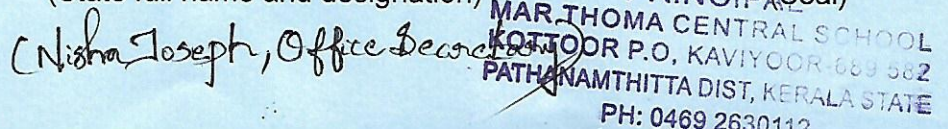 (State full name and designation)
(Nisha Joseph, Office Secretary)
MAR THOMA CENTRAL SCHOOL
KOTTOOR P.O, KAVIYOOR-689 582
PATHANAMTHITTA DIST, KERALA STATE
PH: 0469 2630112